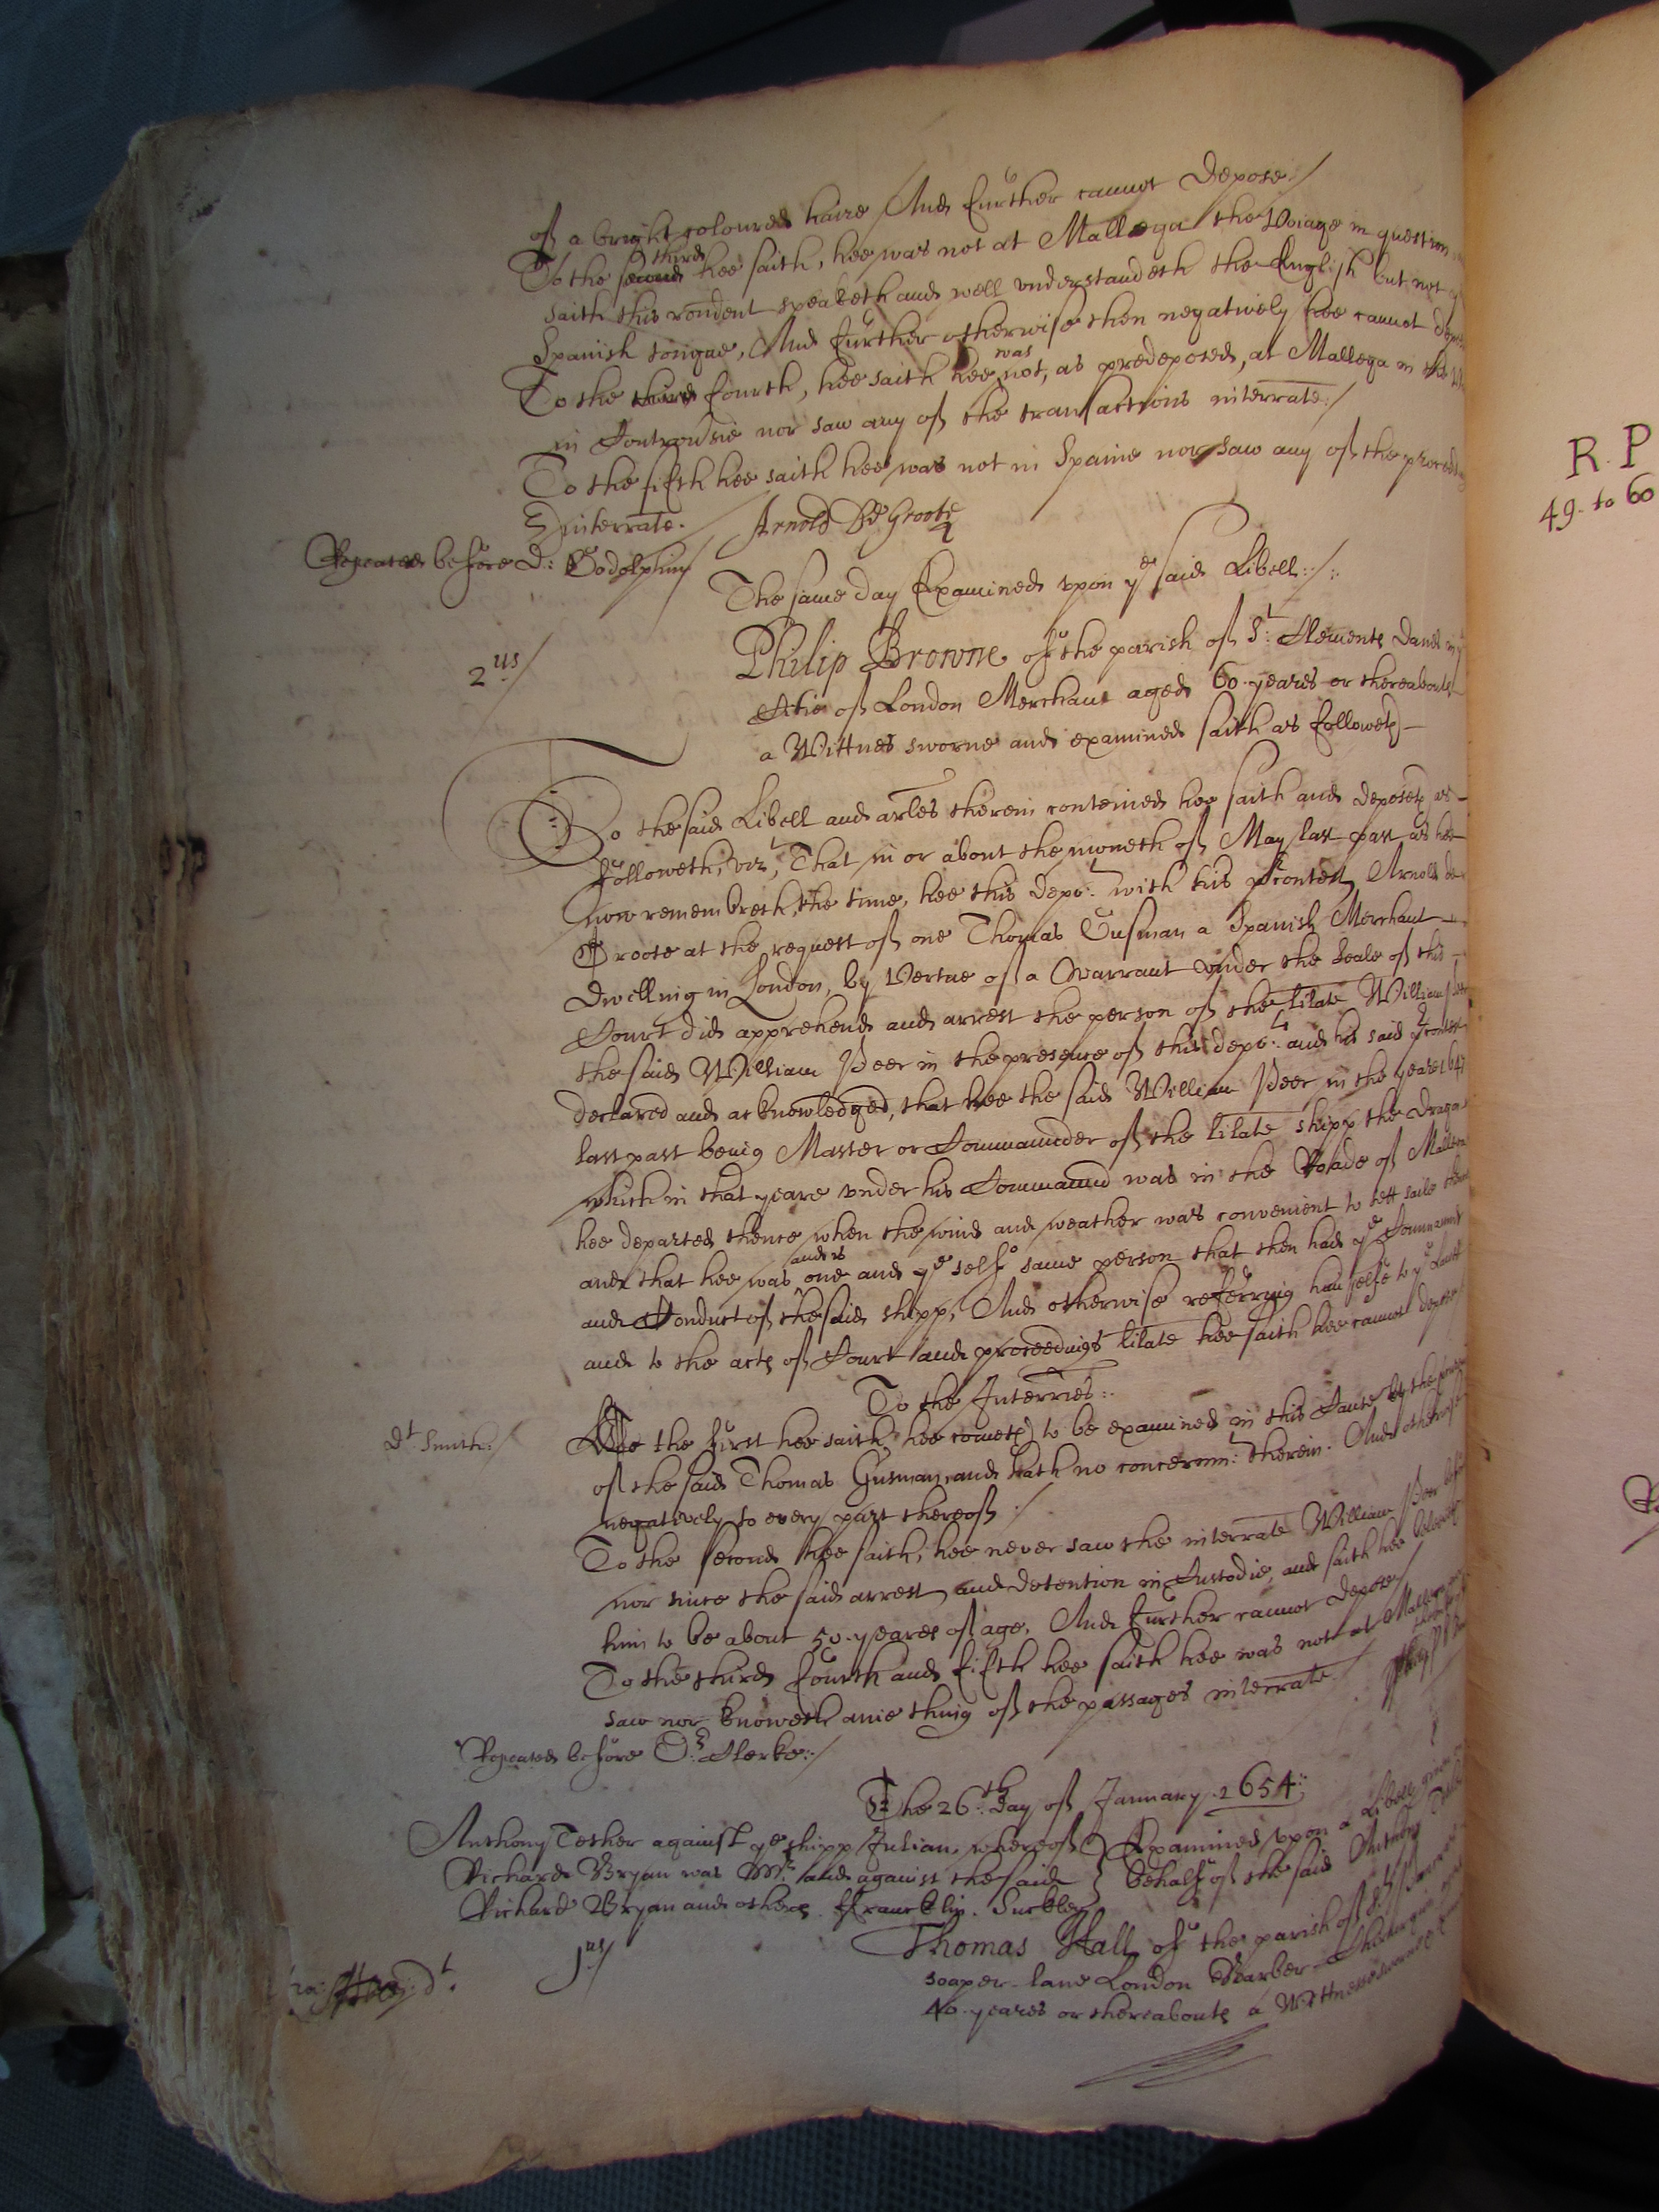 of a bright coloured haire And further cannot depose./
To the second third hee saith, hee was not at Mallega the voiage in question
saith this rondent speaketh and well understandeth the English but not
Spanish tongue, And further otherwise then negatively hee cannot depose
To the third fourth, hee saith hee was not, as predeposed, at Mallega in the
in Controversie nor saw any of the transactions interrate./
To the fifth hee saith hee was not in Spaine nor saw any of the proceedings
interrate.
Arnold De Groote
Repeated before D: Godolphin
The same day Examined upon ye said Libell:/:
2us/
Philip Browne of the parish of St: Clements Danes in
Citie of London Merchant aged 60 yeares or thereabouts
a Wittnes sworne and examined saith as followeth
To the said Libell and arles therein conteined hee saith and deposeth as
followeth, vizt, That in or about the moneth of May last past as hee
now remembreth the time, hee this depot: with his contest Arnold de
Groote at the request of one Thomas Gusman a Spanish Merchant
dwelling in London, by vertue of a Warrant under the seale of this
Court did apprehend and arrest the person of the lilate William Peer
the said William Peer in the presence of this depot: and his said contest
declared and acknowledged, that hee the said William Peer in the yeare 164
last past being Master or Commannder of the lilate shipp the Dragon
which in that yeare under his Commannd was in the Roade of Mallega
hee departed thence when the wind and weather was convenient to sett saile
and that hee was and is one and ye selfe same person that then had ye Commannd
and Conduct of the said shipp, And otherwise referring him selfe to ye Court
and to the acts of Court and proceedings lilate hee saith hee cannot depose
To the Interries:
Dt. Smith:/
To the first hee saith, hee cometh to be examined in this Cause by the
of the said Thomas Gusman, and hath no concernmt: therein. And otherwise
negatively to every part thereof ./
To the second hee saith, hee never saw the interrate William Peer before
nor since the said arrest and detention in Custodie, and saith hee beleeveth
him to be about 50. yeares of age, And further cannot depose/
To the third fourth and fifth hee saith hee was not at Mallega
saw nor knoweth anie thing of the passages interrate./
Repeated before Dr: Clerke:/
The 26th. day of January 1654:
Anthony Tesher against ye shipp Julian, whereof
Richard Bryan was Mr. and against the said
Richard Bryan and others. ffrancklin. Suckley
Examined upon a Libell given
behalf of the said Anthony
1us/
Thomas Hall of the parish of St
soaper-lane London Barber Chirurgion
40. yeares or thereabouts a Wittnesse sworne
dt.
R. P
49. to 60